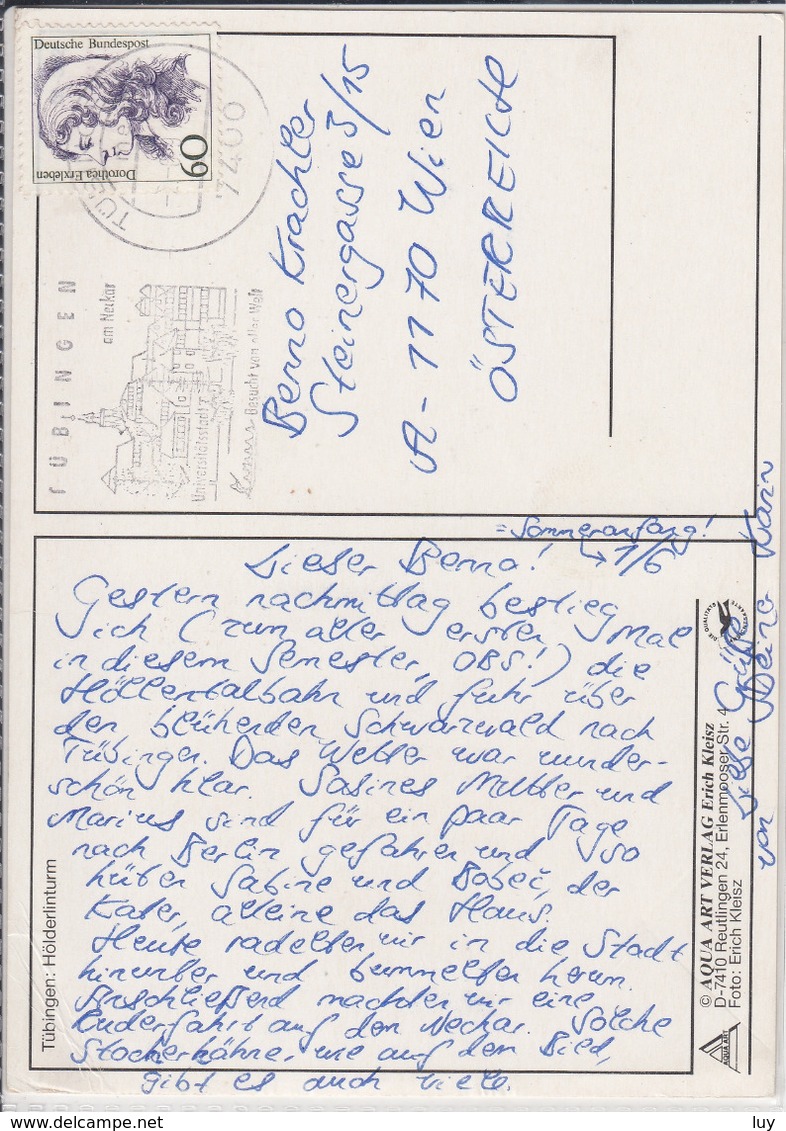 Deutsche Bundespost
60
Dorothea Erxleben
7400
TÜBINGEN
am Neckar
Universitätsstadt
Besucht von aller Welt
Benno Krachler
Steinergasse 3/15
A-1170 Wien
ÖSTERREICH
=Sommeranfang!
Lieber Benno! ↳ 1/6
Gestern nachmittag bestieg
ich (zum aller ersten Mal
in diesem Semester, OBS!) die
Höllentalbahn und fuhr über
den blühenden Schwarzwald nach
Tübingen. Das Wetter war wunder-
schön klar. Sabines Mutter und
Marius sind für ein paar Tage
nach Berlin gefahren und so
hüten Sabine und Bobeč, der
Kater, alleine das Haus.
Heute radelten wir in die Stadt
hinunter und bummelten herum.
Anschließend machten wir eine
Ruderfahrt auf dem Neckar. Solche
Stocherkähne, wie auf dem Bild,
gibt es auch viele.
Liebe Grüße
von Deiner Karin
Tübingen: Hölderlinturm
DIE QUALITÄTS
© AQUA ART VERLAG Erich Kleisz
D-7410 Reutlingen 24, Erlenmooser Str. 4
Foto: Erich Kleisz
AQUA ART
luy